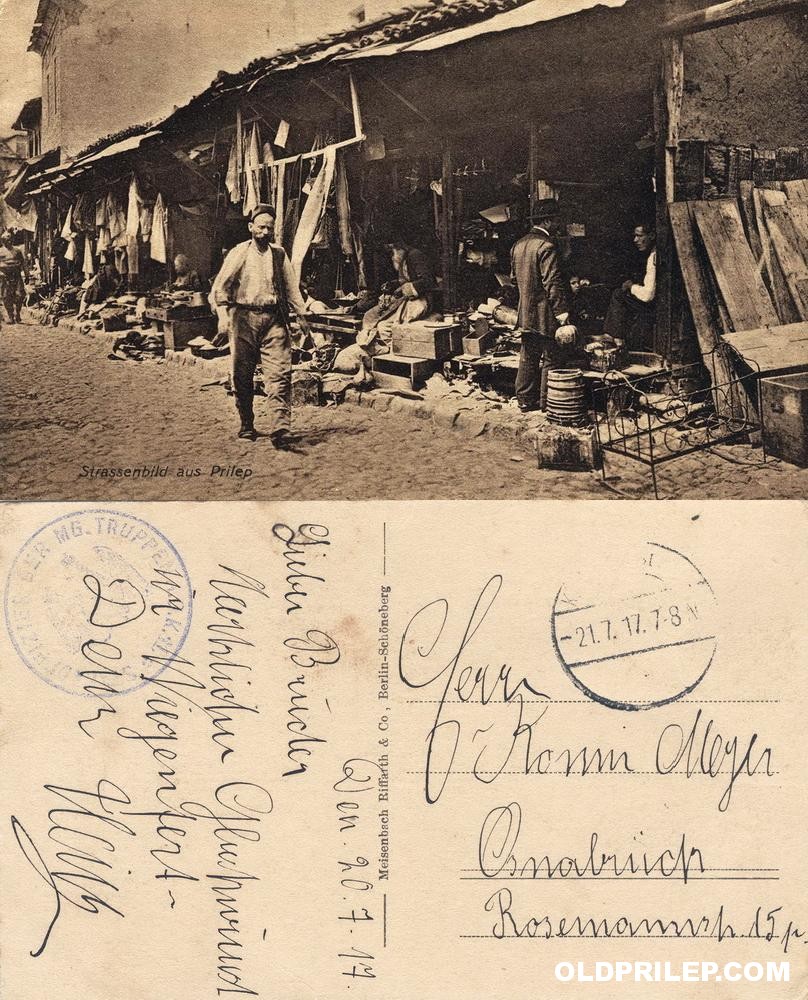 Strassenbild aus Prilep
OFFIZIER DER MG. TRUPPEN
Den. 20.7.17.
Lieber Bruder
Herzlichen Glückwunsch
zur Wiegenfest-
Dein
Meisenbach Riffarth & Co., Berlin-Schöneberg
-21.7.17.7-8N
Herrn
Meyer
Osnabrück
Rosemannstr. 15 p.
OLDPRILEP.COM